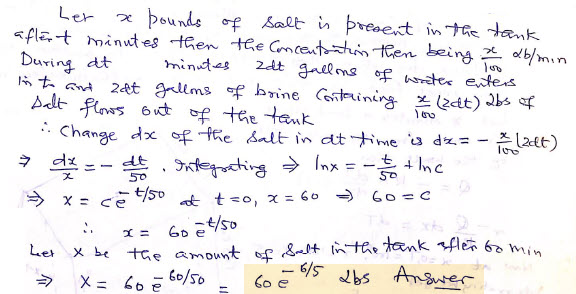 Let x pounds of salt is present in the tank
after t minutes then the Concentration then being x/100 lb/min
During dt minutes 2dt gallons of water enters
in to and 2dt gallons of brine Containing x/100 (2dt) lbs of
Salt flows out of the tank
∴ Change dx of the Salt in dt time is dx = - x/100 (2dt)
⇒ dx/x = - dt/50 . Integrating ⇒ ln x = - t/50 + ln c
⇒ x = c e^{-t/50} at t=0, x=60 ⇒ 60 = c
∴ x = 60 e^{-t/50}
Let X be the amount of Salt in the tank after 60 min
⇒ X = 60 e^{-60/50} = 60 e^{-6/5} lbs Answer